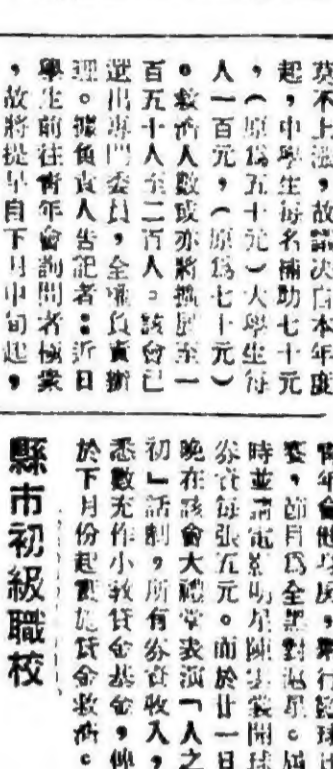 莫不上漲，故議決自本年度
起，中學生每名補助七十元
，（原為五十元）大學生每
人一百元，（原為七十元）
。救濟人數或亦將擴展至一
百五十人至二百人。該會已
選出專門委員，全權負責辦
理。據負責人告記者：近日
學生前往青年會詢問者極衆
，故將提早自下月中旬起，
青年會健身房，舉行籃球比
賽，節目為全黑對海星。屆
時並請電影明星陳雲裳開球
券資每張五元。而於廿一日
晚在該會大禮堂表演「人之
初」話劇，所有券資收入，
悉數充作小教貸金基金，俾
於下月份起實施貸金救濟。
縣市初級職校